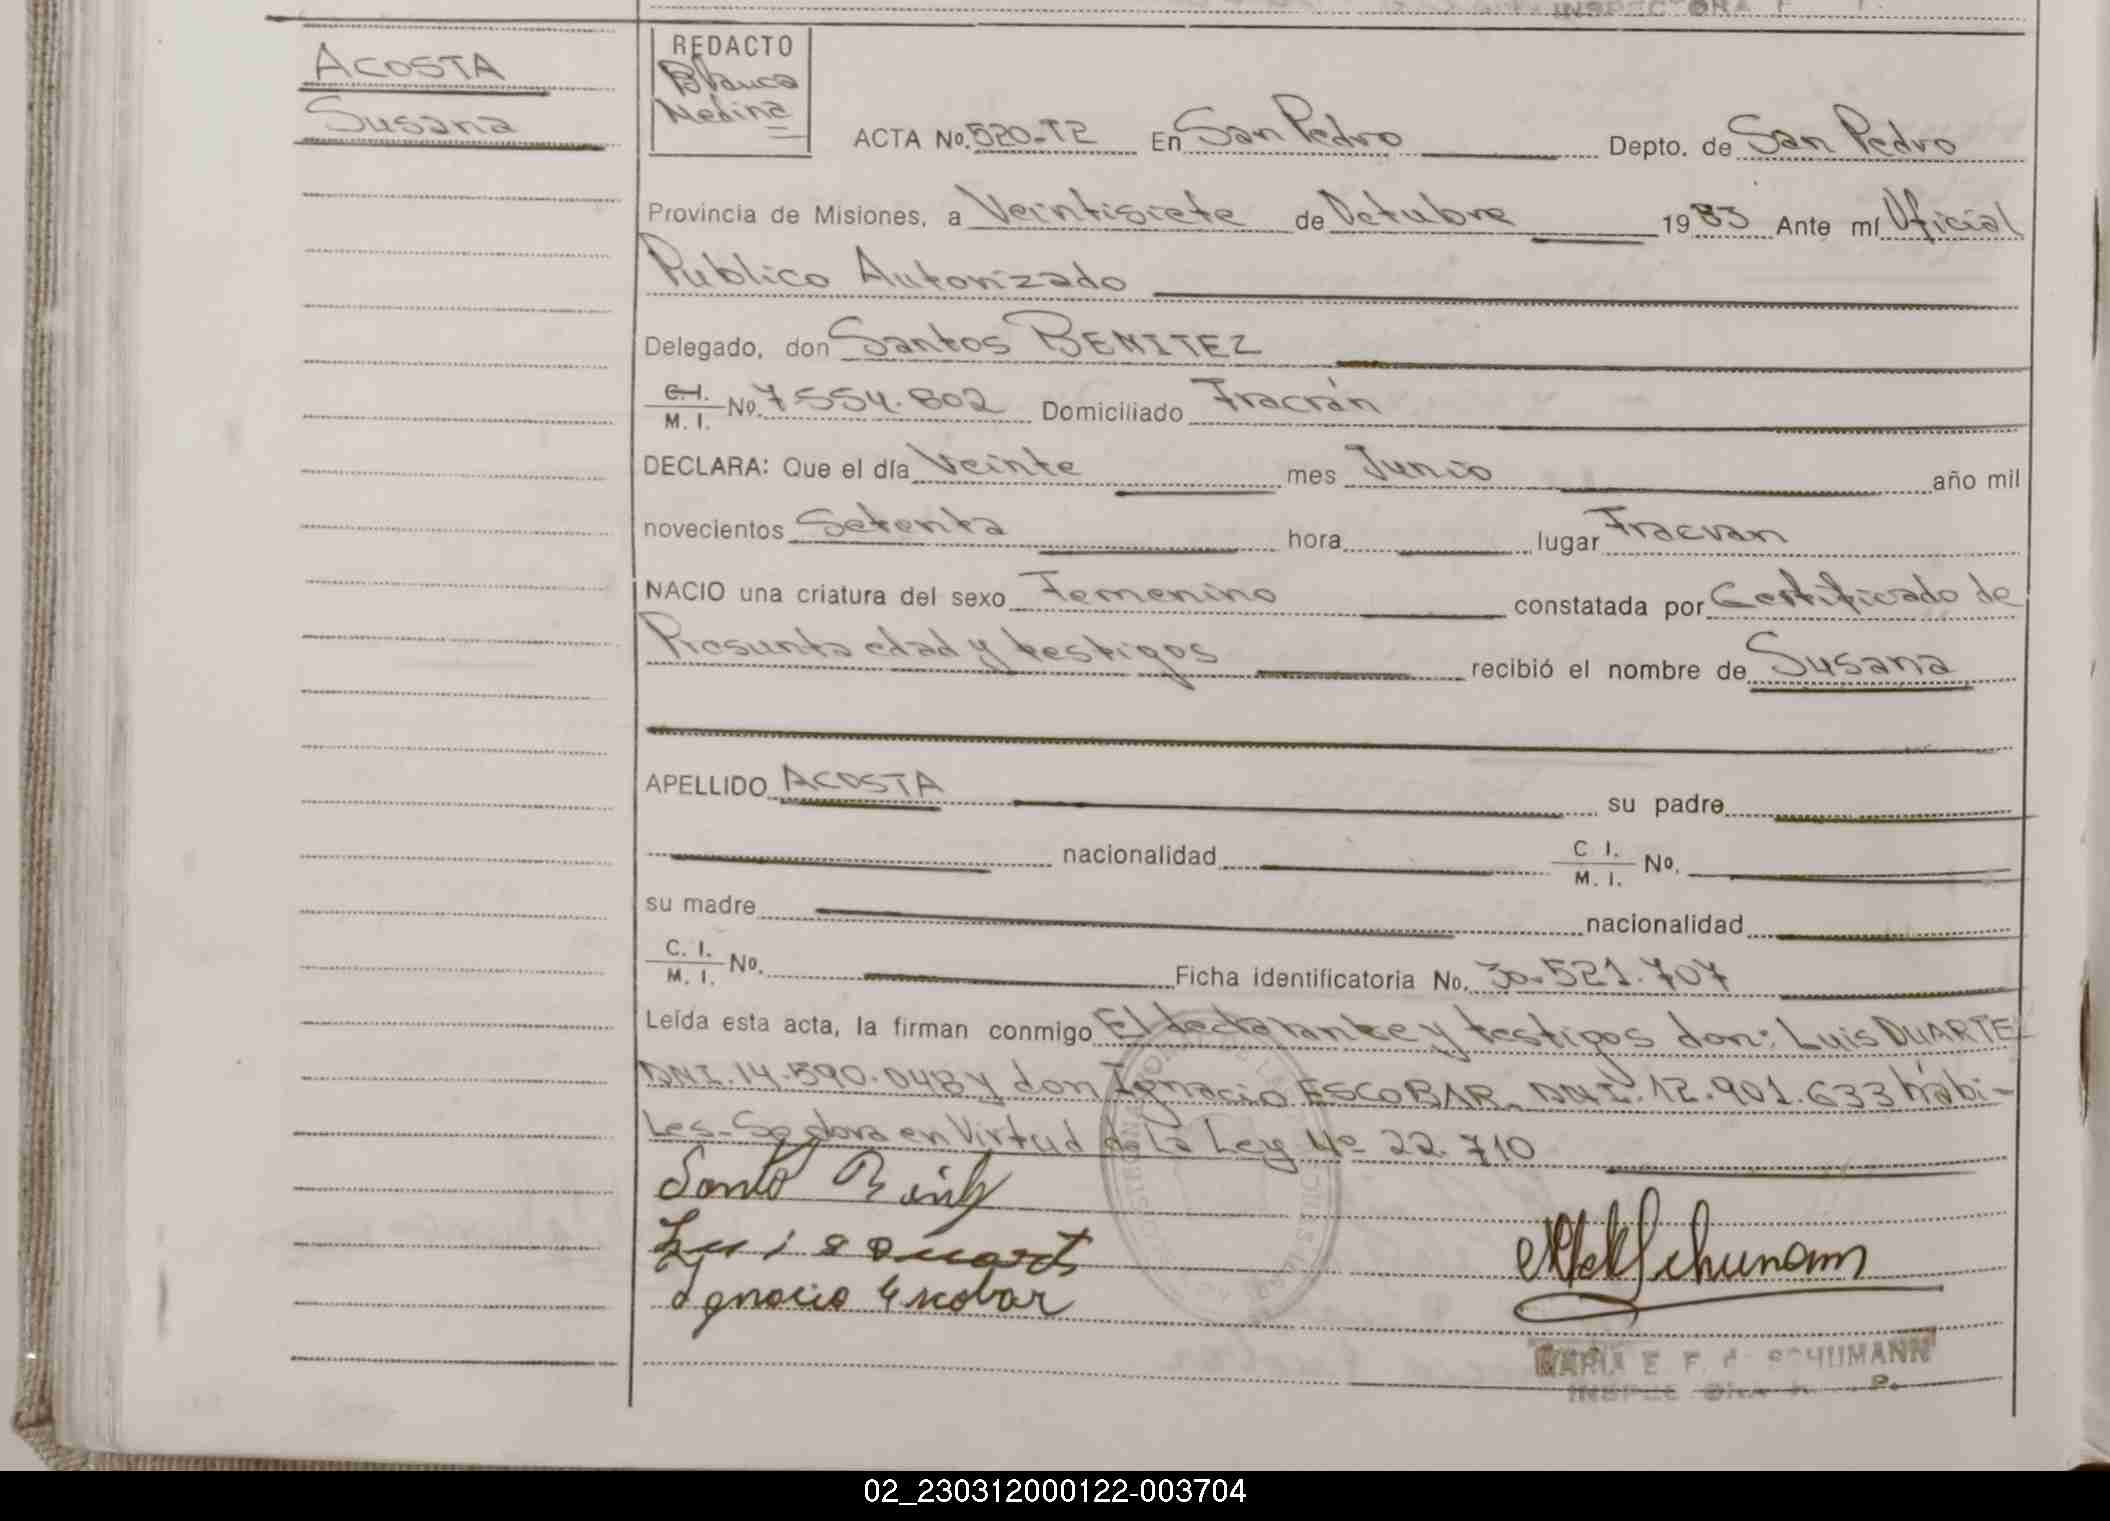 ACOSTA
Susana
REDACTO
Blanca
Medina
ACTA No. 520-T2 En San Pedro Depto. de San Pedro
Provincia de Misiones, a Veintisiete de Octubre 1983 Ante mí Oficial
Publico Autorizado
Delegado, don Santos BENITEZ
C.I. / M. I. No. 7554.802 Domiciliado Fracrán
DECLARA: Que el día Veinte mes Junio año mil
novecientos Setenta hora lugar Fracran
NACIO una criatura del sexo Femenino constatada por Certificado de
Presunta edad y testigos recibió el nombre de Susana
APELLIDO ACOSTA su padre
nacionalidad C I. / M. I. No.
su madre nacionalidad
C. I. / M. I. No. Ficha identificatoria No. 30.521.707
Leída esta acta, la firman conmigo El declarante y testigos don: Luis DUARTE
DNI. 14.590.048 y don Ignacio ESCOBAR DNI. 12.901.633 hábi-
les- en Virtud de la Ley Nº 22.710
Luis Duarte
Ignacio Escobar
MARIA E. F. SCHUMANN
02_230312000122-003704